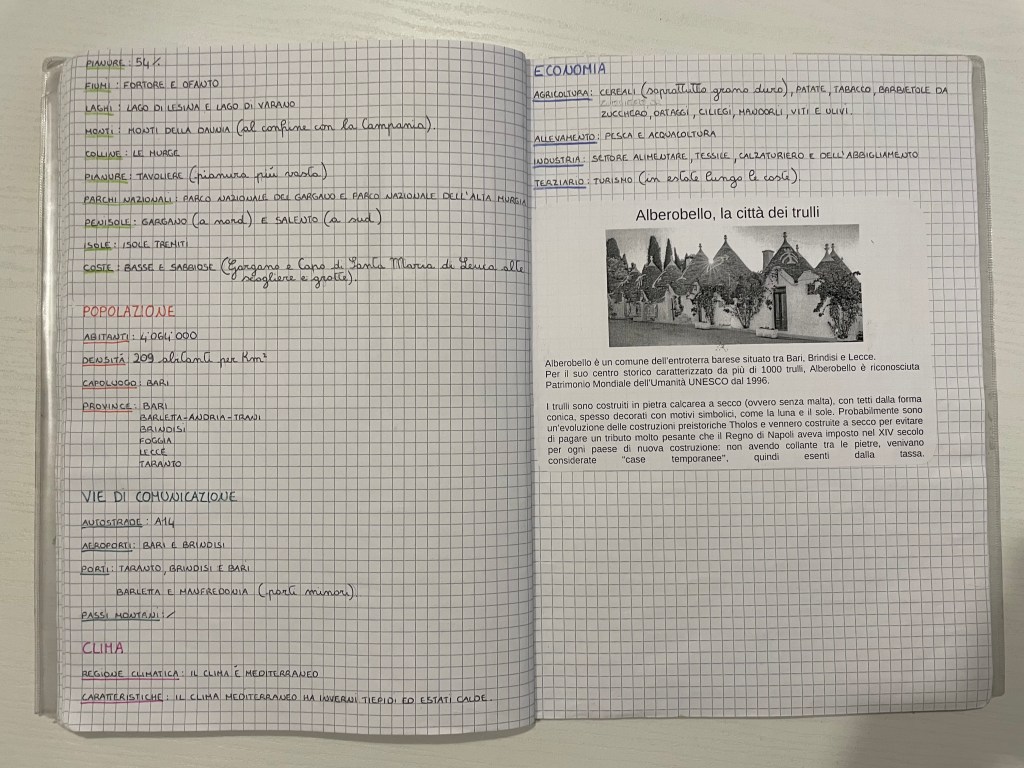 PIANURE: 54%
FIUMI: FORTORE E OFANTO
LAGHI: LAGO DI LESINA E LAGO DI VARANO
MONTI: MONTI DELLA DAUNIA (al confine con la Campania).
COLLINE: LE MURGE
PIANURE: TAVOLIERE (pianura più vasta)
PARCHI NAZIONALI: PARCO NAZIONALE DEL GARGANO E PARCO NAZIONALE DELL'ALTA MURGIA
PENISOLE: GARGANO (a nord) E SALENTO (a sud)
ISOLE: ISOLE TREMITI
COSTE: BASSE E SABBIOSE (Gargano e Capo di Santa Maria di Leuca alte
scogliere e grotte).
POPOLAZIONE
ABITANTI: 4'064'000
DENSITÁ 209 abitanti per Km²
CAPOLUOGO: BARI
PROVINCE: BARI
BARLETTA-ANDRIA-TRANI
BRINDISI
FOGGIA
LECCE
TARANTO
VIE DI COMUNICAZIONE
AUTOSTRADE: A14
AEROPORTI: BARI E BRINDISI
PORTI: TARANTO, BRINDISI E BARI
BARLETTA E MANFREDONIA (porti minori).
PASSI MONTANI: /
CLIMA
REGIONE CLIMATICA: IL CLIMA É MEDITERRANEO
CARATTERISTICHE: IL CLIMA MEDITERRANEO HA INVERNI TIEPIDI ED ESTATI CALDE.
ECONOMIA
AGRICOLTURA: CEREALI (soprattutto grano duro), PATATE, TABACCO, BARBIETOLE DA
ZUCCHERO, ORTAGGI, CILIEGI, MANDORLI, VITI E ULIVI.
ALLEVAMENTO: PESCA E ACQUACOLTURA
INDUSTRIA: SETTORE ALIMENTARE, TESSILE, CALZATURIERO E DELL'ABBIGLIAMENTO
TERZIARIO: TURISMO (in estate lungo le coste).
Alberobello, la città dei trulli
Alberobello è un comune dell'entroterra barese situato tra Bari, Brindisi e Lecce.
Per il suo centro storico caratterizzato da più di 1000 trulli, Alberobello è riconosciuta
Patrimonio Mondiale dell'Umanità UNESCO dal 1996.
I trulli sono costruiti in pietra calcarea a secco (ovvero senza malta), con tetti dalla forma
conica, spesso decorati con motivi simbolici, come la luna e il sole. Probabilmente sono
un'evoluzione delle costruzioni preistoriche Tholos e vennero costruite a secco per evitare
di pagare un tributo molto pesante che il Regno di Napoli aveva imposto nel XIV secolo
per ogni paese di nuova costruzione: non avendo collante tra le pietre, venivano
considerate "case temporanee", quindi esenti dalla tassa.